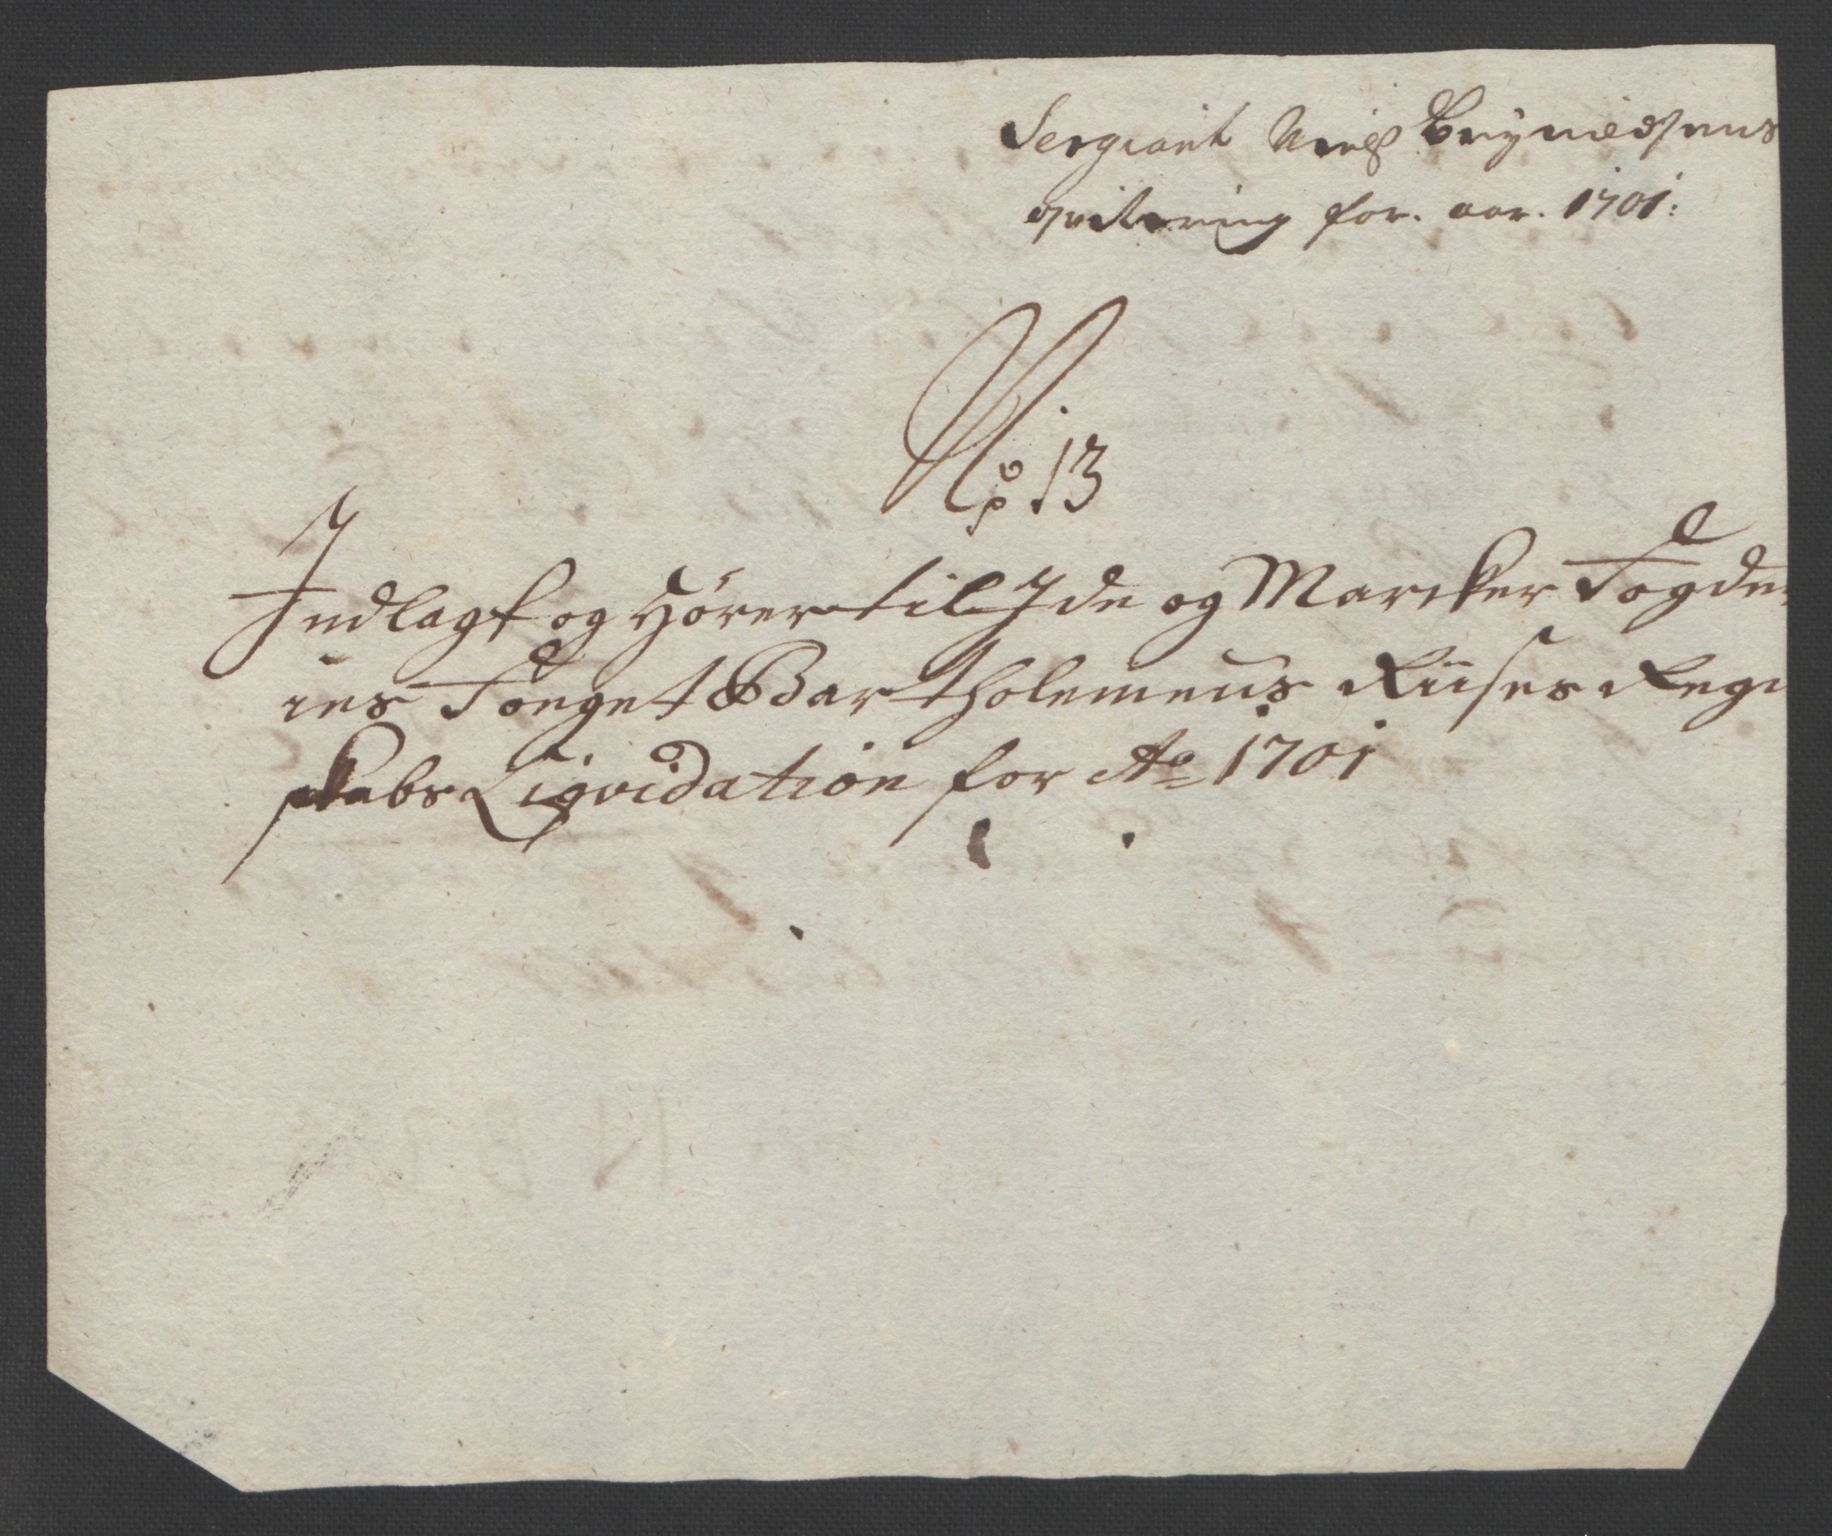 Sergiant Nielß Brynildsens
qvitering for. aar. 1701:
No 13
Indlagt og Hører til Ide og Marcker Fogde-
ries Fogget Bartholemeus Riises Regn
skabs Liqvidation for Ao 1701